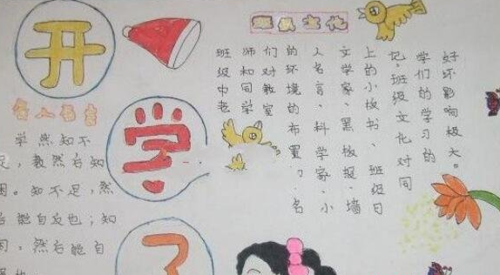 开
学
了
名人名言
学然知不
足，教然后知
困。知不足，然
后能自反也；知
困。然后能自
班级文化
班级中老
师和同学
们对教室
的环境的布置？名
人名言、科学家、小
文学家、黑板报、墙
上的小板书、班级日
记。班级文化对同
学们的学习的
好坏影响极大。